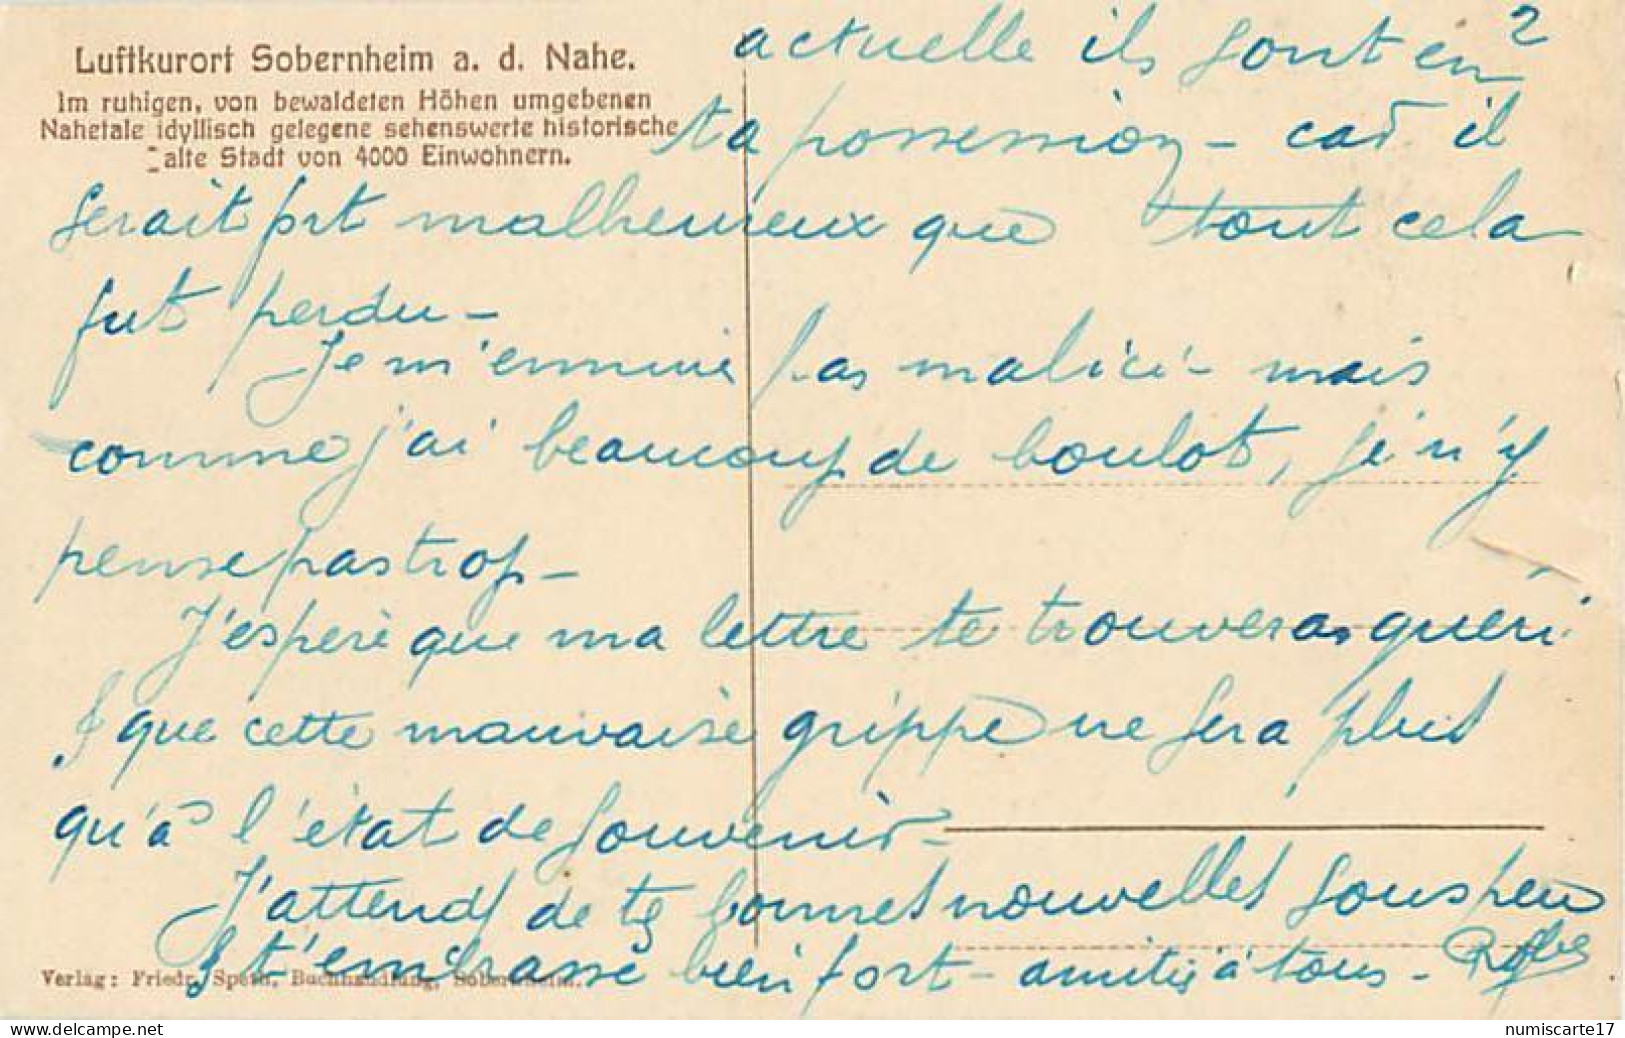 2
Luftkurort Sobernheim a. d. Nahe.
Im ruhigen, von bewaldeten Höhen umgebenen
Nahetale idyllisch gelegene sehenswerte historische
alte Stadt von 4000 Einwohnern.
actuelle ils sont en
ta possession - car il
serait fort malheureux que tout cela
fut perdu -
Je m'ennuie pas mal ici - mais
comme j'ai beaucoup de boulot, je n'y
pense pas trop -
J'espère que ma lettre te trouveras guéri
& que cette mauvaise grippe ne sera plus
qu'à l'état de souvenir -
J'attends de tes bonnes nouvelles sous peu
& t'embrasse bien fort - amitiés à tous -
Verlag: Friedr. Speth, Buchhandlung, Sobernheim.
delcampe.net
numiscarte17